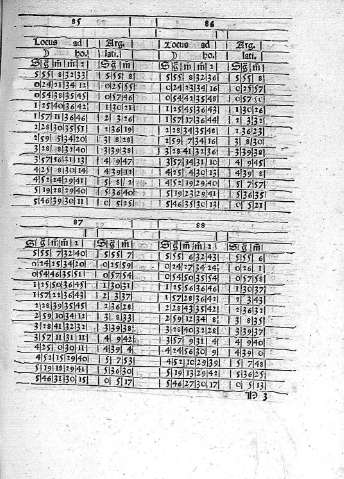 85 86
Locus ad Arg. Locus ad Arg.
ho. lati. ho. lati.
5 55 8 32 33 5 55 8 5 55 8 32 36 5 55 8
0 24 21 34 12 0 25 55 0 24 23 34 16 0 25 57
0 54 38 35 45 0 57 46 0 54 42 35 48
1 25 40 36 42 1 30 21 1 25 45 36 43 1 30 26
2 3 26 1 57 17 36 44 2 3 32
2 28 30 35 51 2 36 19 2 28 34 35 48 2 36 23
2 59 5 34 20 3 8 28 2 59 7 34 16 3 8 30
3 28 38 32 40 3 39 38 3 28 41 32 36 3 39 39
3 57 16 31 13 4 9 47 3 57 14 31 10 4 9 45
4 25 8 30 14 4 39 12 4 25 4 30 13 4 39 8
4 52 24 29 41 5 8 2 4 52 19 29 40 5 7 57
5 19 28 29 40 5 36 40 5 19 23 29 41 5 36 35
5 46 39 30 11 0 5 25 5 46 35 30 13 0 5 21
87 88
5 55 7 32 40 5 55 7 5 55 6 32 43 5 55 6
0 24 25 34 20 0 25 59 0 24 27 34 24 0 26 1
0 54 46 35 51 0 57 54 0 54 50 35 54 0 57 58
1 25 50 36 45 1 30 31 1 25 56 36 46 1 30 37
1 57 21 36 43 2 3 37 1 57 28 36 42 2 3 43
2 28 39 35 45 2 36 28 2 28 43 35 42 2 36 32
2 59 10 34 12 3 8 33 2 59 12 34 8 3 8 35
3 28 41 32 32 3 39 38 3 28 40 32 28 3 39 37
3 57 11 31 11 4 9 42 3 57 9 31 4 4 9 40
4 25 0 30 11 4 39 4 4 24 56 30 9 4 39 0
4 52 15 29 40 5 7 53 4 52 10 29 39 5 7 48
5 19 18 29 41 5 36 30 5 19 13 29 42 5 36 25
5 46 31 30 15 0 5 17 5 46 27 30 17 0 5 13